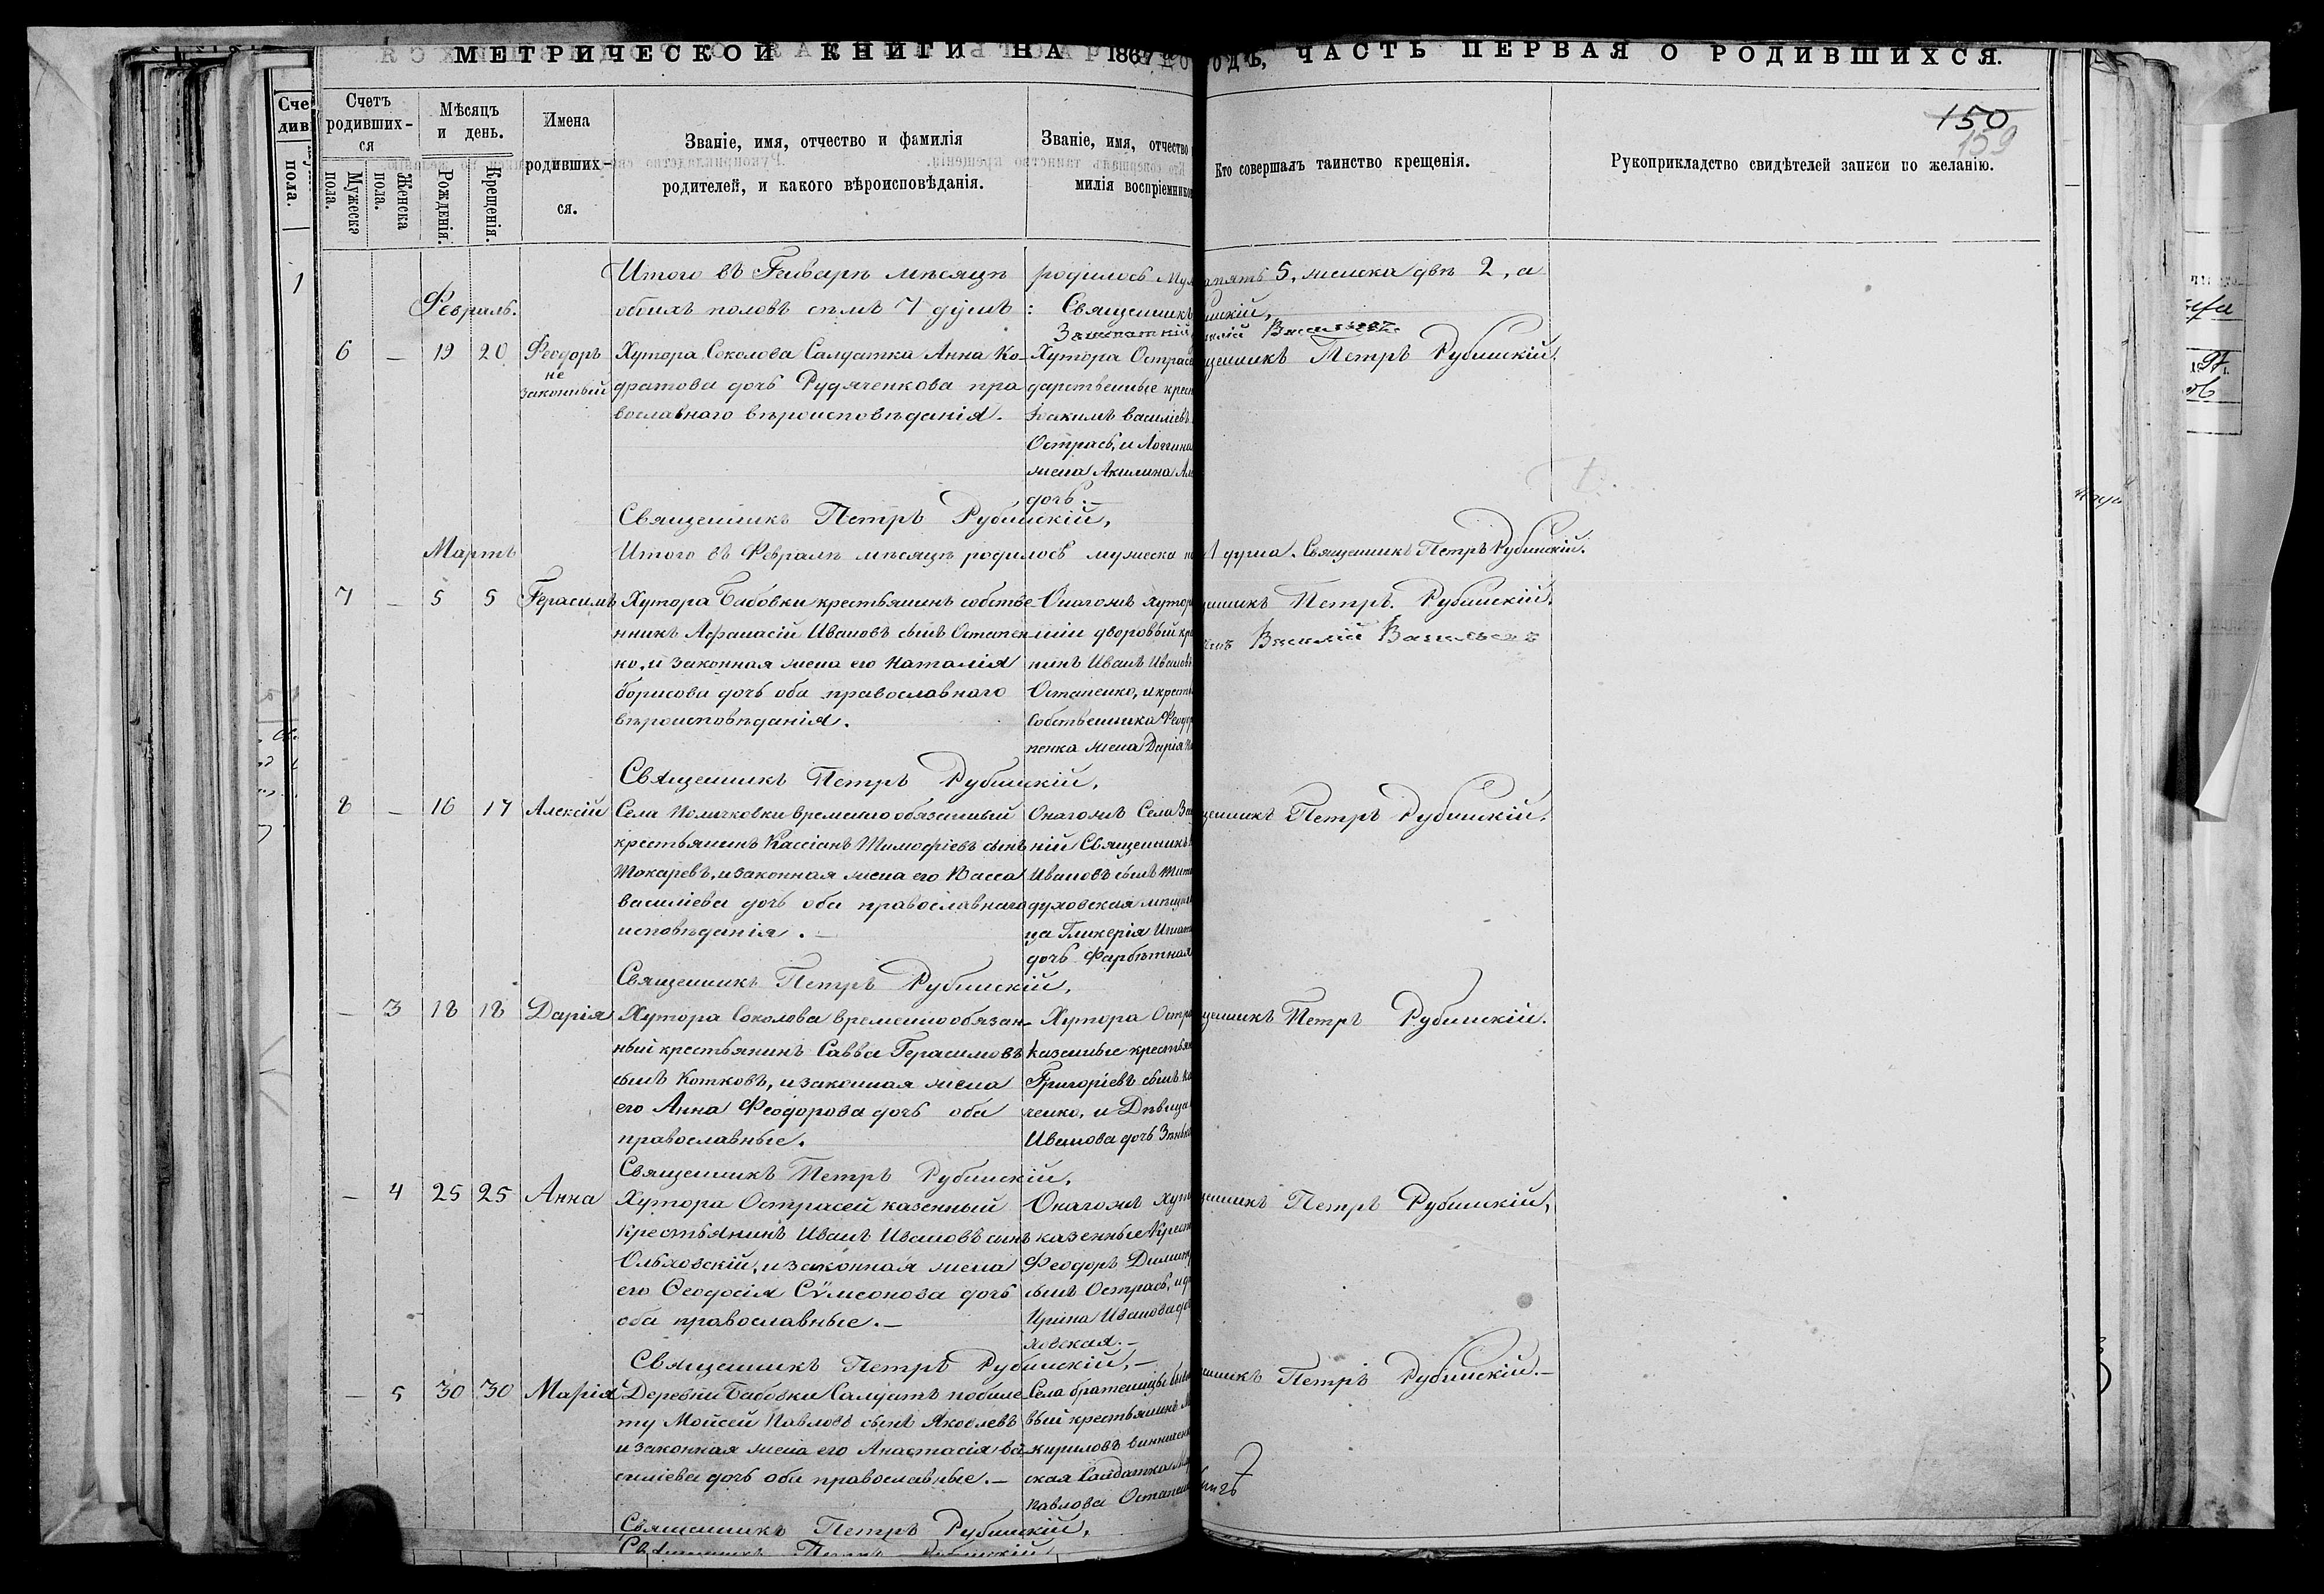 МЕТРИЧЕСКОЙ КНИГИ НА 1867 ГОДЪ, ЧАСТЬ ПЕРВАЯ О РОДИВШИХСЯ.
150
159
Счетъ родивших-ся
Мужеска пола.
Женска пола.
Мѣсяцъ и день.
Рожденія.
Крещенія.
Имена родивших-ся.
Званіе, имя, отчество и фамилія
родителей, и какого вѣроисповѣданія.
Званіе, имя, отчество
милія воспріемниковъ
Кто совершалъ таинство крещенія.
Рукоприкладство свидѣтелей записи по желанію.
Итого въ Генварѣ мѣсяцѣ родилось муж пять 5, женска двѣ 2, а
обоихъ половъ семь 7 душъ: Священникъ
Февраль.
6 — 19 20 Феодоръ незаконный
Хутора Соколова Салдатка Анна Ко-
дратова дочь Рудяченкова пра
вославнаго вѣроисповѣданія.
Хутора Острасе
дарственные крес
Іоакимъ василіевъ
Острась, и Логгина
жена Акилина Ал
дочь.—
Священникъ Петръ Рубинскій.
Священникъ Петръ Рубинскій,
Мартъ
Итого въ Февралѣ мѣсяцѣ родилось мужеска 1 душа. Священникъ Петръ Рубинскій.
7 — 5 5 Герасимъ
Хутора Бабовки крестьянинъ собстве-
нникъ Афанасій Ивановъ сынъ Остапен
ко, и законная жена его Наталія
борисова дочь оба православнаго
вѣроисповѣданія.
Онагожъ хутор
ніи дворовый кре
нинъ Иванъ Ивановъ
Остапенко, и кресть
собственника Феодор
пенка жена Дарія
Петръ. Рубинскій.
Василій Васильевъ
Священникъ Петръ Рубинскій,
8 — 16 17 Алексій
Села Поличковки временнообязанный
крестьянинъ Кассіанъ Тимофіевъ сынъ
Токаревъ, и законная жена его Васса
василіева дочь оба православнаго
исповѣданія.—
Онагожъ Села
ній Священникъ
Ивановъ сынъ Тит
духовская мѣщан
ца Гликерія Игнат
дочь Фарбѣтная
Петръ Рубинскій.
Священникъ Петръ Рубинскій,
— 3 18 18 Дарія
Хутора Соколова временнообязан-
ный крестьянинъ Савва Герасимовъ
сынъ Котковъ, и законная жена
его Анна Феодорова дочь оба
православные.
Хутора Остра
казенные крестьян
Григоріевъ сынъ
ченко, и Дѣвица
Иванова дочь Зѣнько
Петръ Рубинскій.
Священникъ Петръ Рубинскій,
— 4 25 25 Анна
Хутора Острасей казенный
Крестьянинъ Иванъ Ивановъ сынъ
Ольховскій, и законная жена
его Ѳеодосія Сѵмеонова дочь
оба православные.—
Онагожъ хут
казенные Крест
Феодоръ Димит
сынъ Острась, и
Ирина Иванова до
ховская.—
Петръ Рубинскій,
Священникъ Петръ Рубинскій,—
— 5 30 30 Марія
Деревни Бабовки Салдатъ побиле-
ту Мойсей Павловъ сынъ Яковлевъ
и законная жена его Анастасія ва-
силіева дочь оба православные.—
Села братеницы
вый крестьянинъ
кириловъ винничен
ская Салдатка
павлова Остапен
Петръ Рубинскій.—
Священникъ Петръ Рубинскій,